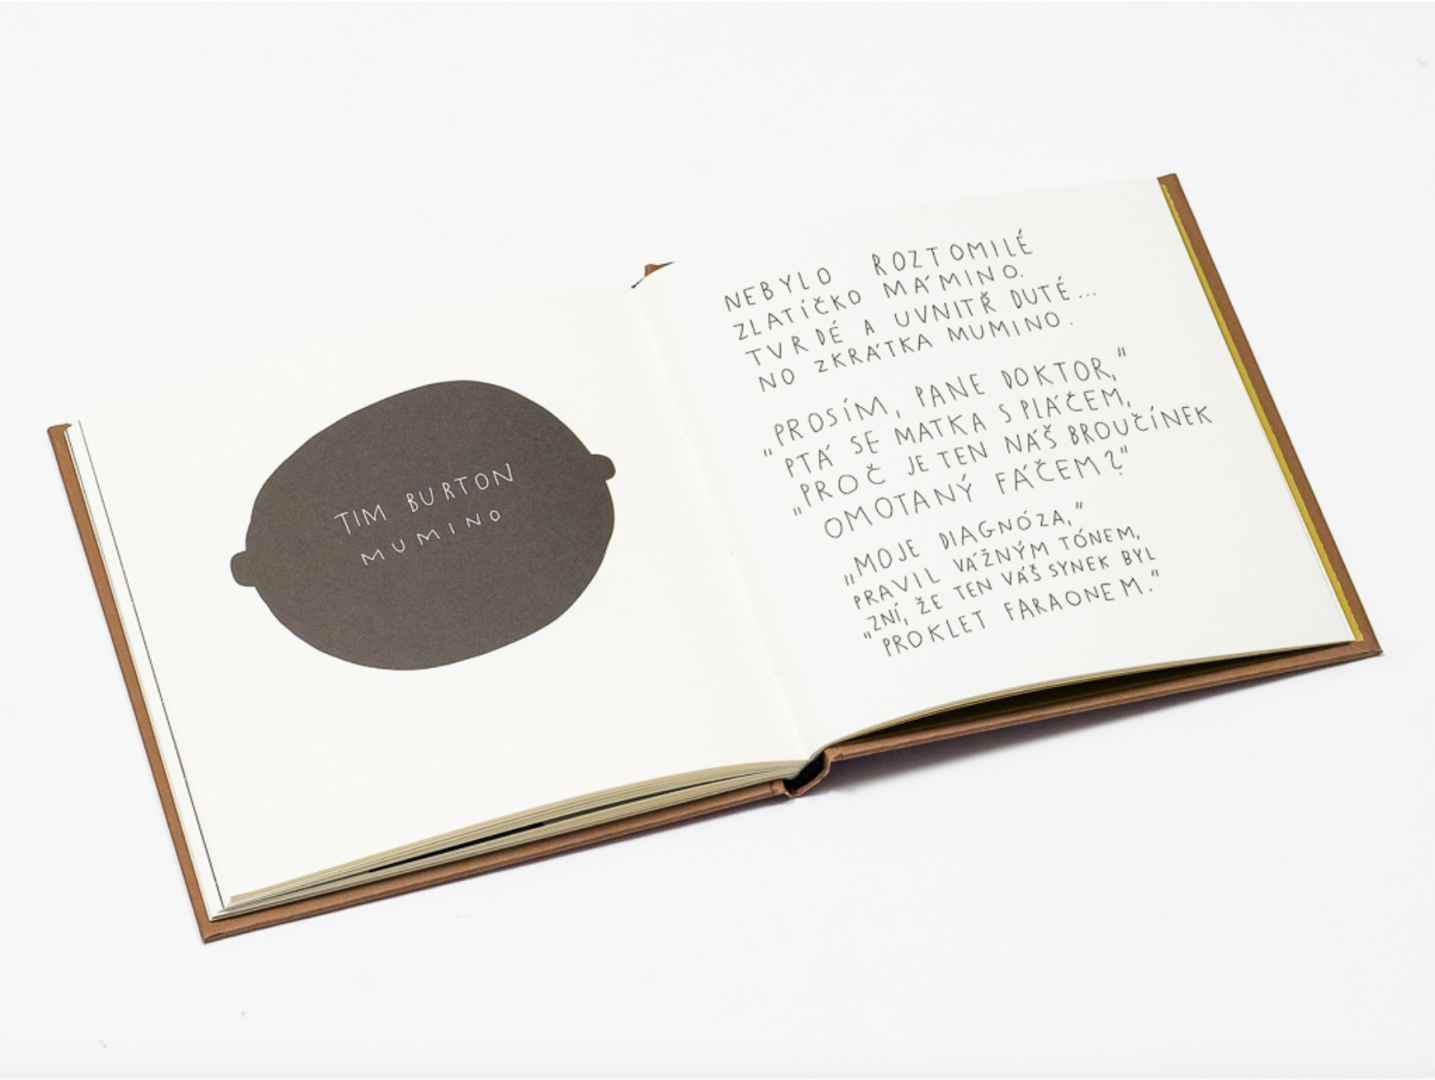 TIM BURTON
MUMINO
NEBYLO ROZTOMILÉ
ZLATÍČKO MÁMINO.
TVRDÉ A UVNITŘ DUTÉ...
NO ZKRÁTKA MUMINO.
„PROSÍM, PANE DOKTOR,"
„PTÁ SE MATKA S PLÁČEM,
„PROČ JE TEN NÁŠ BROUČÍNEK
OMOTANÝ FÁČEM?"
„MOJE DIAGNÓZA,"
PRAVIL VÁŽNÝM TÓNEM,
„ZNÍ, ŽE TEN VÁŠ SYNEK BYL
"PROKLET FARAONEM."